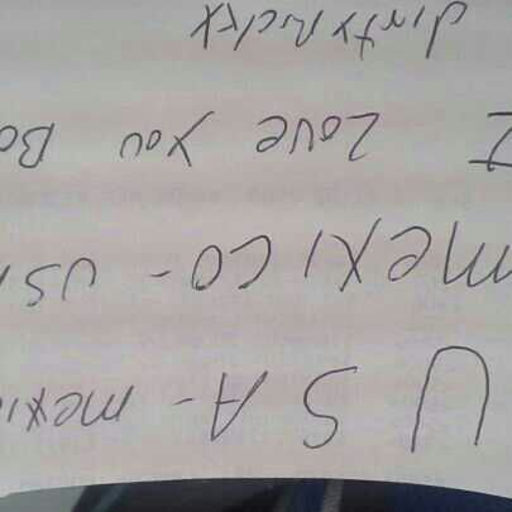 U S A - mexi
mexico - USA
I Love You Bo
dirty Ricky